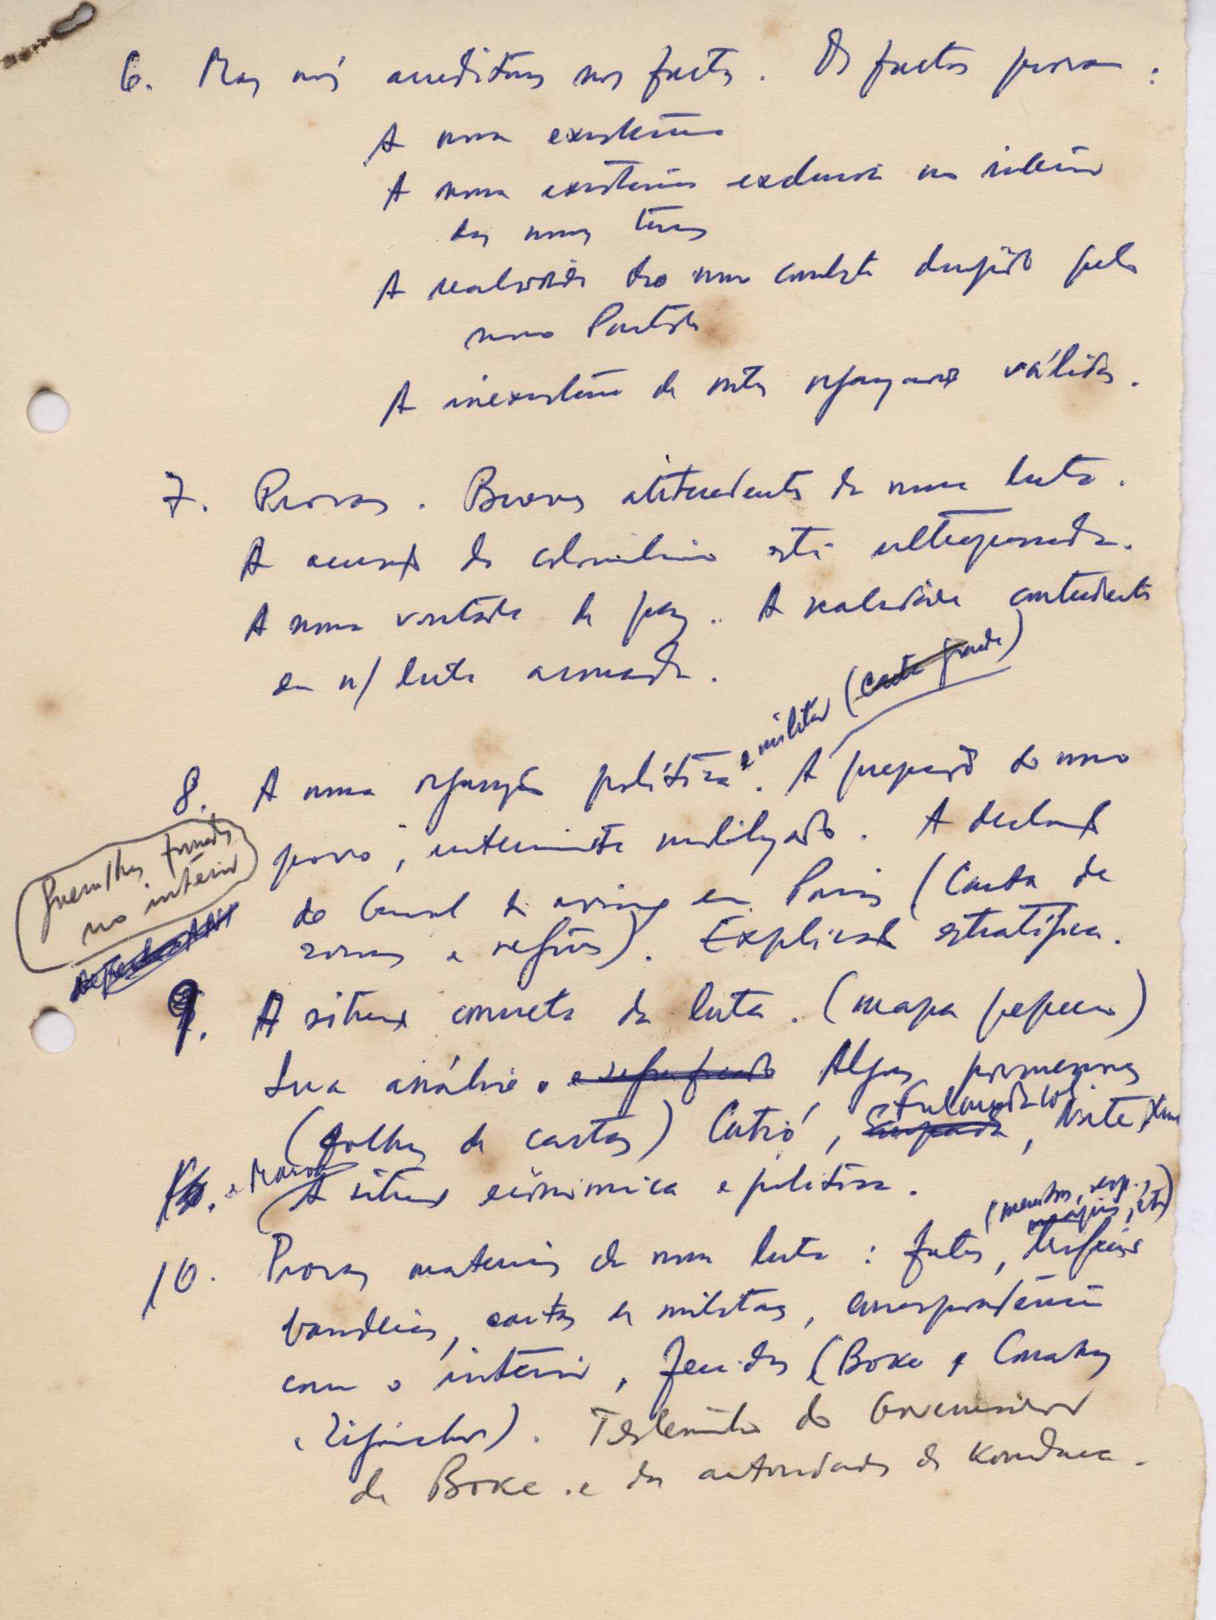 6. Mas nós acreditamos nos factos. Os factos provam:
A nossa existência
A nossa existência exclusiva no interior
das nossas terras
A realidade do nosso combate dirigido pelo
nosso Partido
A inexistência de outras organizações válidas.
7. Provas. Breves antecedentes da nossa luta.
A acusação do colonialismo está ultrapassada.
A nossa vontade de paz. A realidade contundente
da n/ luta armada.
e militar (carta grande)
8. A nossa organização política. A preparação do nosso
povo, intensamente mobilizado. A declaração
Guerrilhas formadas
no interior
do General de avião em Paris (Carta de
zonas e regiões). Explicação estratégica.
9. A situação concreta da luta. (mapa pequeno)
Sua análise. Alguns pormenores
(folhas de cartas) Catió, Fulacunda, Norte,
A situação económica e política.
10. Provas materiais da nossa luta: fotos,
bandeiras, cartas de militantes, correspondência
com o interior, feridos (Boke e Conakry
e Ziguinchor). Testemunho do Governador
de Boke e das autoridades de Koundara.